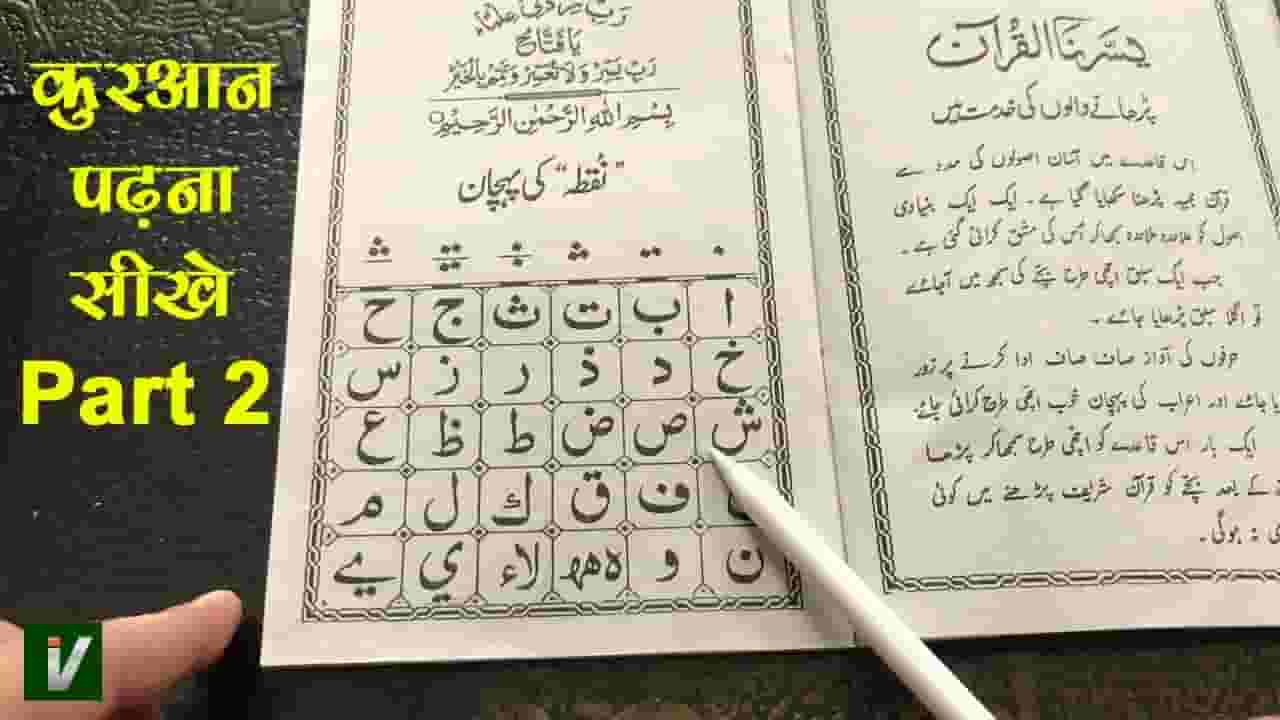 कुरआन
पढ़ना
सीखे
Part 2
يَا فَتَّاحُ
رَبِّ يَسِّرْ وَلَا تُعَسِّرْ وَتَمِّمْ بِالْخَيْرِ
بِسْمِ اللهِ الرَّحْمٰنِ الرَّحِيْمِ
”نُقطہ“ کی پہچان
ا ب ت ث ج ح
خ د ذ ر ز س
ش ص ض ط ظ ع
ف ق ك ل م
ن و ه ھ لا ء ي ے
يَسَّرْنَا الْقُرْآن
پڑھانے والوں کی خدمت میں
اس قاعدے میں آسان اصولوں کی مدد سے
قرآن مجید پڑھنا سکھایا گیا ہے۔ ایک ایک بنیادی
اصول کو علاحدہ علاحدہ سمجھا کر اُس کی مشق کرائی گئی ہے۔
جب ایک سبق اچھی طرح بچّے کی سمجھ میں آجائے
تو اگلا سبق پڑھایا جائے۔
حرفوں کی آواز صاف صاف ادا کرنے پر زور
دیا جائے اور اعراب کی پہچان خوب اچھی طرح کرائی جائے
ایک بار اس قاعدے کو اچھی طرح سمجھا کر پڑھا
کے بعد بچّے کو قرآن شریف پڑھنے میں کوئی
نہ ہوگی۔
iV